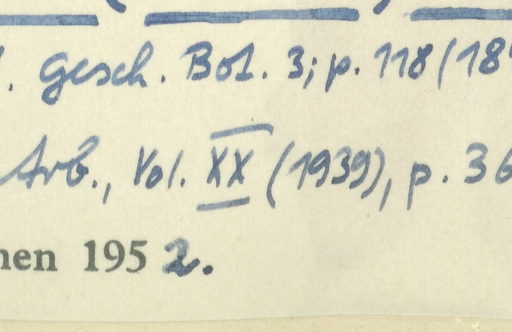 . Gesch. Bot. 3; p. 118 (18
Arb., Vol. XX (1939), p. 36
nen 1952.